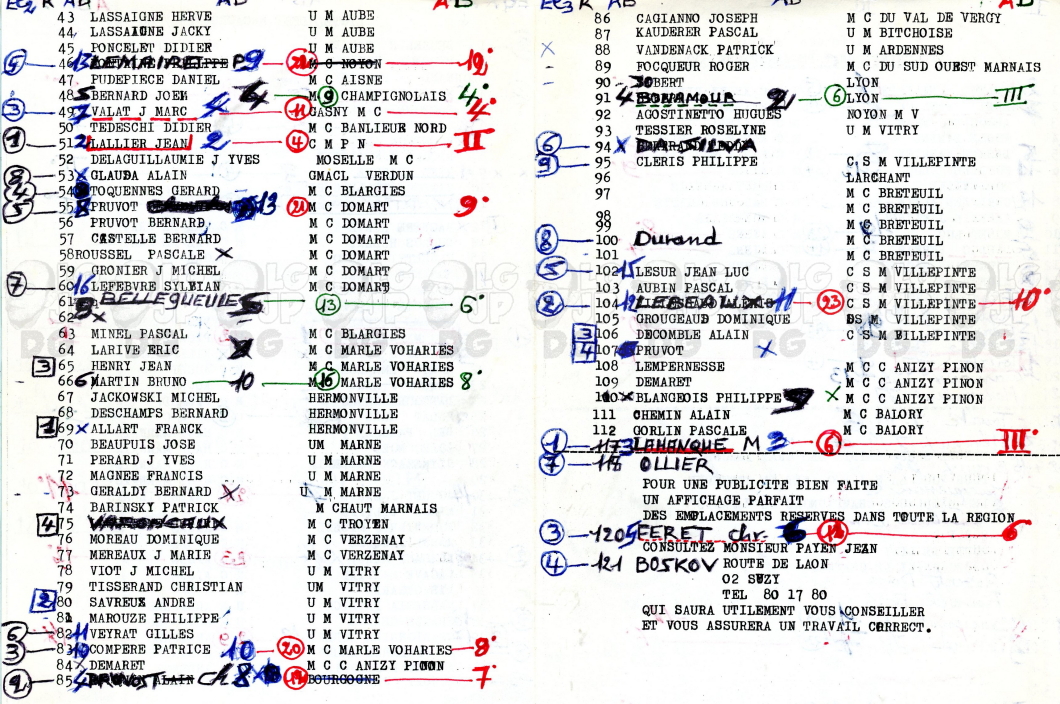 43 LASSAIGNE HERVE U M AUBE
44 LASSAIGNE JACKY U M AUBE
45 PONCELET DIDIER U M AUBE
5 46 13 LEMAIRE P 9 M C NOYON
47 PUDEPIECE DANIEL M C AISNE
48 5 BERNARD JOEL 4 9 CHAMPIGNOLAIS 4
3 49 7 VALAT J MARC 4 11 GASNY M C 4
50 TEDESCHI DIDIER M C BANLIEUE NORD
1 51 2 LALLIER JEAN 2 4 C M P N II
52 DELAGUILLAUMIE J YVES MOSELLE M C
8 53 x GLAUDA ALAIN GMACL VERDUN
4 54 TOQUENNES GERARD M C BLARGIES
5 55 PRUVOT 13 21 M C DOMART 9
56 PRUVOT BERNARD M C DOMART
57 CASTELLE BERNARD M C DOMART
58 ROUSSEL PASCALE x M C DOMART
59 GRONIER J MICHEL M C DOMART
7 60 16 LEFEBVRE SYLVIAN M C DOMART
61 BELLEGUEULE 5 13 6
62 x
63 MINEL PASCAL M C BLARGIES
64 LARIVE ERIC M C MARLE VOHARIES
3 65 HENRY JEAN M C MARLE VOHARIES
66 6 MARTIN BRUNO 10 16 MARLE VOHARIES 8
67 JACKOWSKI MICHEL HERMONVILLE
68 DESCHAMPS BERNARD HERMONVILLE
1 69 x ALLART FRANCK HERMONVILLE
70 BEAUPUIS JOSE UM MARNE
71 PERARD J YVES U M MARNE
72 MAGNEE FRANCIS U M MARNE
73 GERALDY BERNARD x U M MARNE
74 BARINSKY PATRICK M CHAUT MARNAIS
4 75 M C TROYEN
76 MOREAU DOMINIQUE M C VERZENAY
77 MEREAUX J MARIE M C VERZENAY
78 VIOT J MICHEL U M VITRY
79 TISSERAND CHRISTIAN UM VITRY
2 80 SAVREUX ANDRE U M VITRY
81 MAROUZE PHILIPPE U M VITRY
6 82 11 VEYRAT GILLES U M VITRY
3 83 10 COMPERE PATRICE 10 20 M C MARLE VOHARIES 8
84 x DEMARET M C C ANIZY PINON
2 85 4 PRUVOST ALAIN Ch 8 BOURGOGNE 7
86 CAGIANNO JOSEPH M C DU VAL DE VERGY
87 KAUDERER PASCAL U M BITCHOISE
x 88 VANDENACK PATRICK U M ARDENNES
89 FOCQUEUR ROGER M C DU SUD OUEST MARNAIS
90 LYON
91 4 BONAMOUR 2 6 LYON III
92 AGOSTINETTO HUGUES NOYON M V
93 TESSIER ROSELYNE U M VITRY
6 94 x DA SILVA
9 95 CLERIS PHILIPPE C S M VILLEPINTE
96 LARCHANT
97 M C BRETEUIL
M C BRETEUIL
98 M C BRETEUIL
99
8 100 Durand M C BRETEUIL
101 M C BRETEUIL
5 102 15 LESUR JEAN LUC C S M VILLEPINTE
103 AUBIN PASCAL C S M VILLEPINTE
2 104 11 23 C S M VILLEPINTE 10
105 GROUGEAUD DOMINIQUE DS M VILLEPINTE
3 106 DECOMBLE ALAIN C S M BILLEPINTE
4 107 PRUVOT x
108 LEMPERNESSE M C C ANIZY PINON
109 DEMARET M C C ANIZY PINON
110 x BLANGEOIS PHILIPPE x M C C ANIZY PINON
111 CHEMIN ALAIN M C BALORY
112 GORLIN PASCALE M C BALORY
1 117 3 LAHANQUE M 3 6 III
7 118 OLLIER
POUR UNE PUBLICITE BIEN FAITE
UN AFFICHAGE PARFAIT
DES EMPLACEMENTS RESERVES DANS TOUTE LA REGION
3 120 5 FERET chr. 6 6
CONSULTEZ MONSIEUR PAYEN JEAN
4 121 BOSKOV ROUTE DE LAON
02 SUZY
TEL 80 17 80
QUI SAURA UTILEMENT VOUS CONSEILLER
ET VOUS ASSURERA UN TRAVAIL CORRECT.